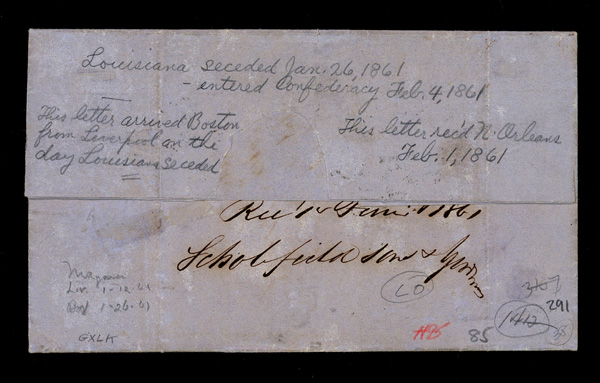 Louisiana seceded Jan. 26, 1861
- entered Confederacy Feb. 4, 1861
This letter arrived Boston
from Liverpool on the
day Louisiana seceded
This letter rec'd N. Orleans
Feb. 1, 1861
1861
Scholfield Son &
LO
Liv. 1-12-61
1-26-61
GXLK
85
1412
291